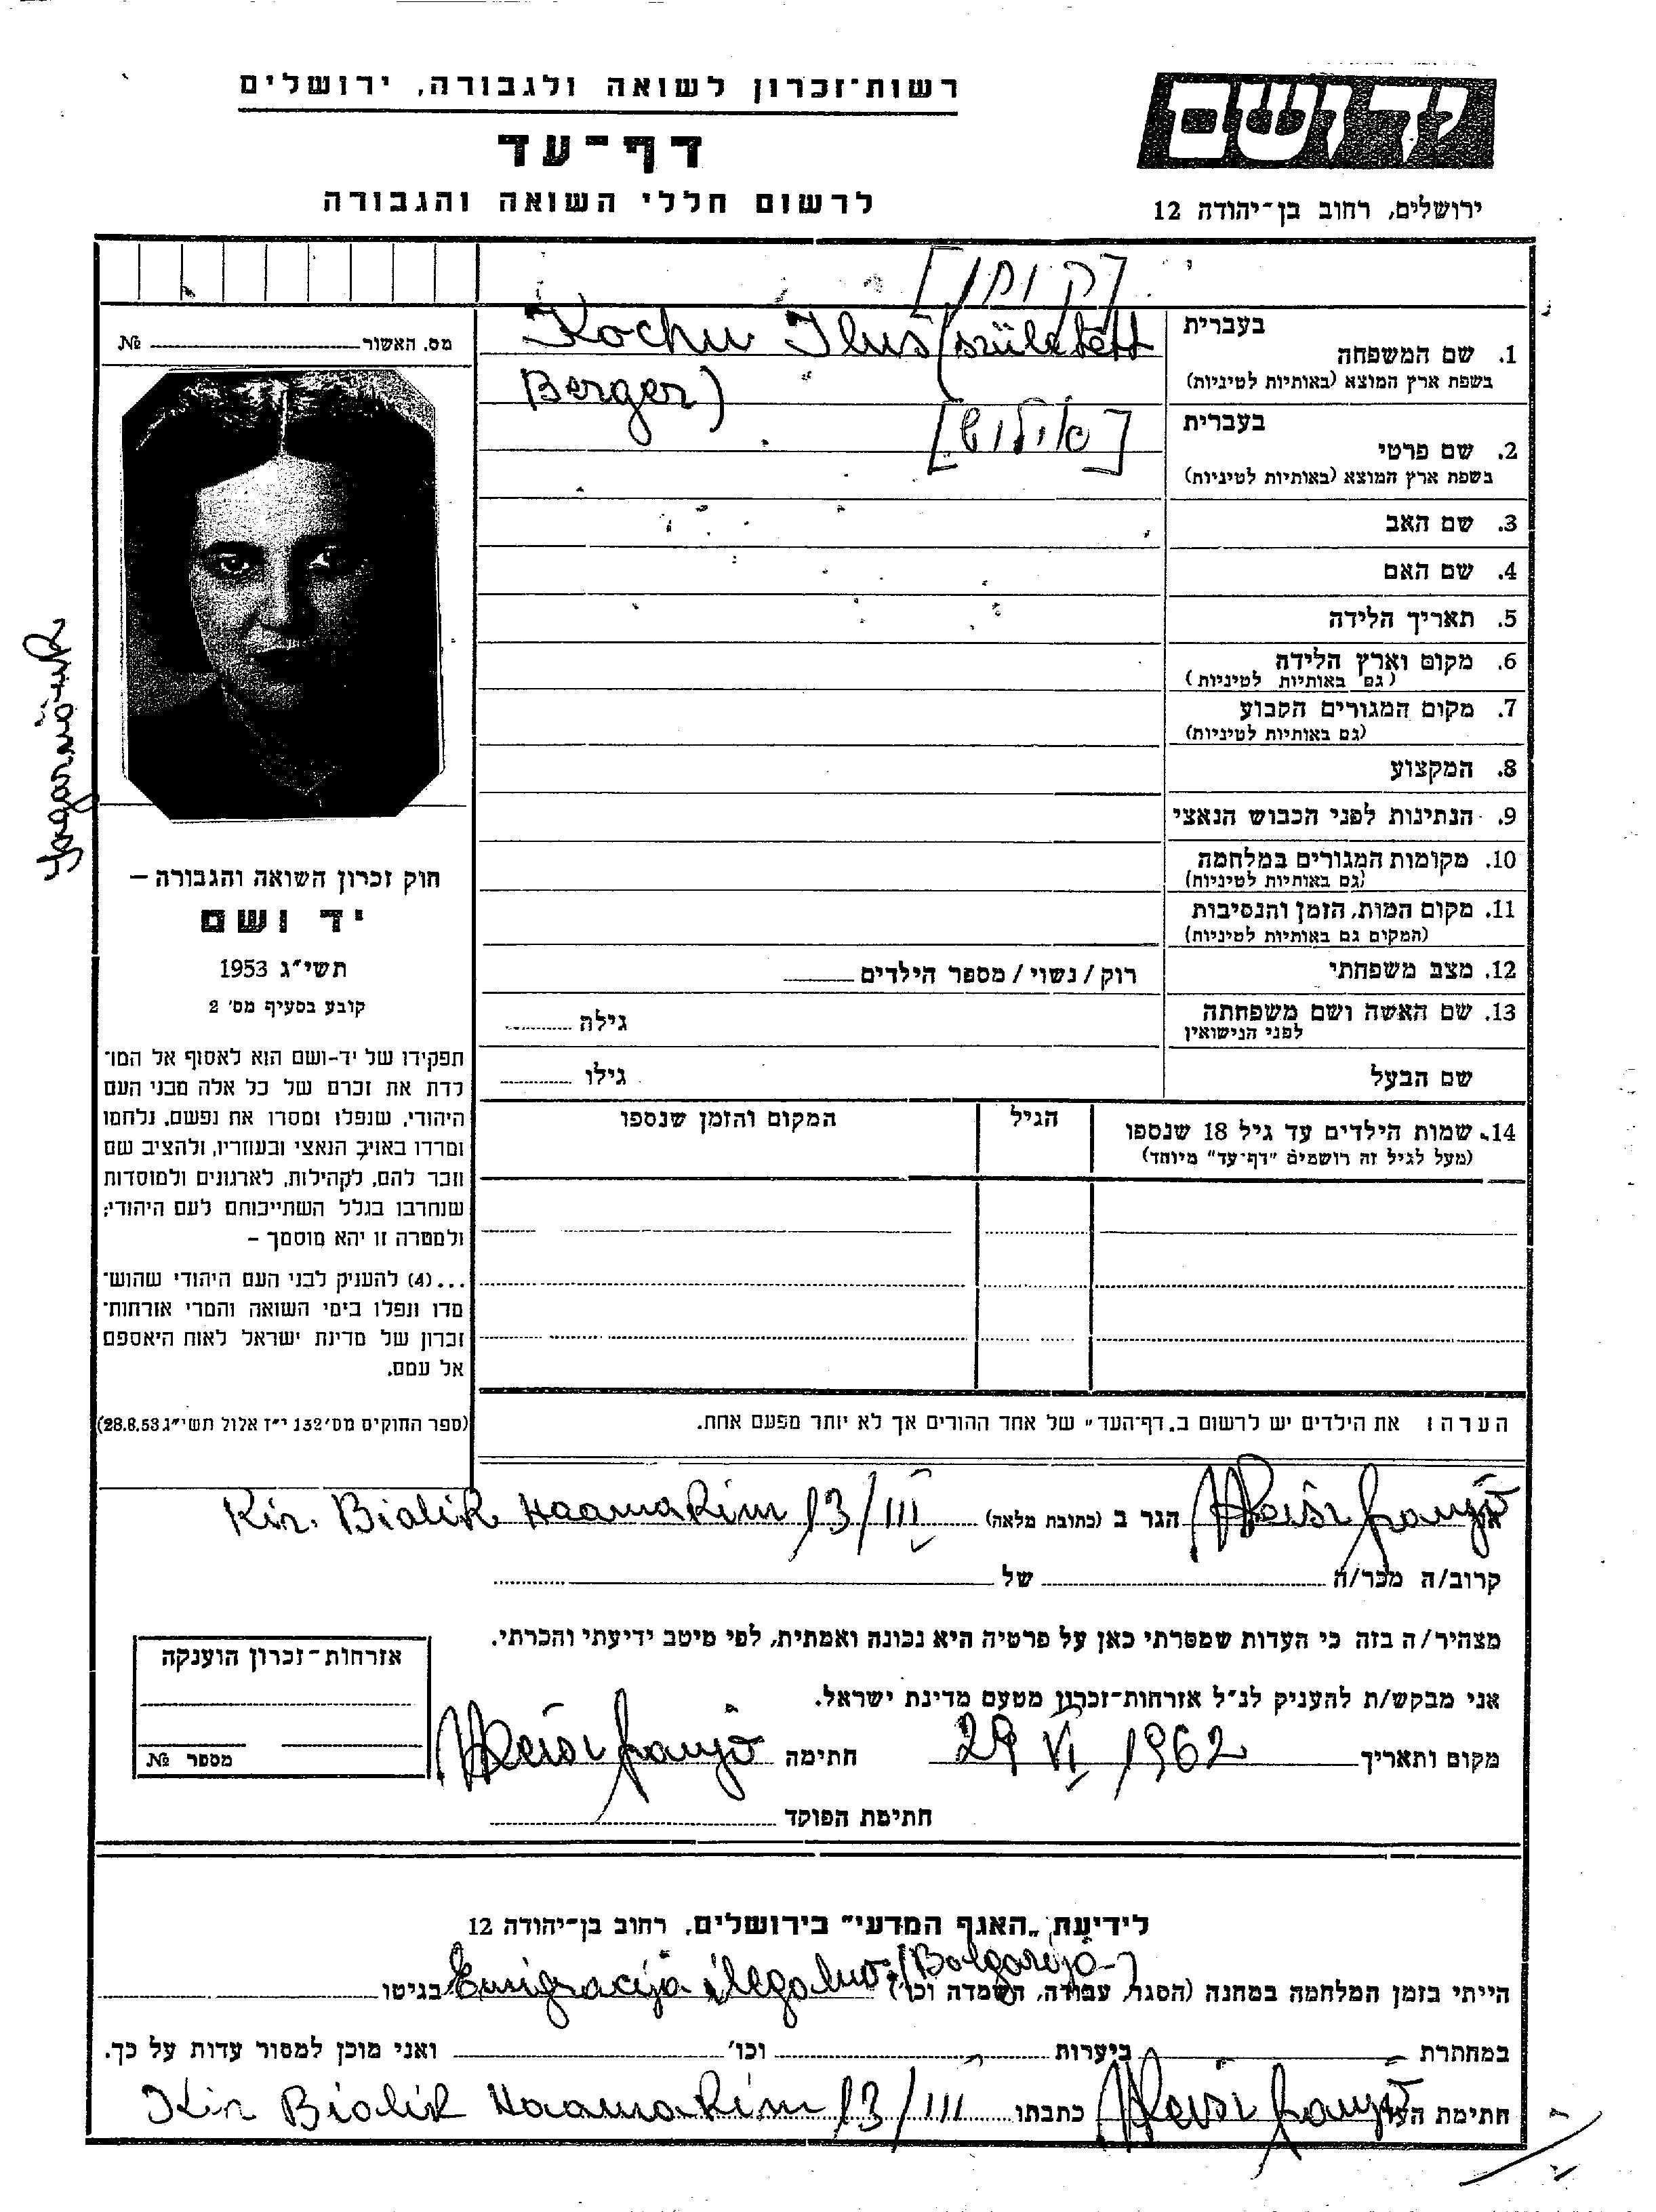 רשות־זכרון לשואה ולגבורה, ירושלים
דף־עד
לרשום חללי השואה והגבורה
יד ושם
ירושלים, רחוב בן־יהודה 12
[קוחן]
Kochn Iluš (született
Berger)
בעברית
1. שם המשפחה
בשפת ארץ המוצא (באותיות לטיניות)
[אילוש]
בעברית
2. שם פרטי
בשפת ארץ המוצא (באותיות לטיניות)
3. שם האב
4. שם האם
5. תאריך הלידה
6. מקום וארץ הלידה
(גם באותיות לטיניות)
7. מקום המגורים הקבוע
(גם באותיות לטיניות)
8. המקצוע
9. הנתינות לפני הכבוש הנאצי
10. מקומות המגורים במלחמה
(גם באותיות לטיניות)
11. מקום המות, הזמן והנסיבות
(המקום גם באותיות לטיניות)
12. מצב משפחתי
רוק / נשוי / מספר הילדים
13. שם האשה ושם משפחתה
לפני הנישואין
גילה
שם הבעל
גילו
14. שמות הילדים עד גיל 18 שנספו
(מעל לגיל זה רושמים "דף־עד" מיוחד)
הגיל
המקום והזמן שנספו
מס. האשור № 
חוק זכרון השואה והגבורה —
יד ושם
תשי"ג 1953
קובע בסעיף מס' 2
תפקידו של יד-ושם הוא לאסוף אל המו־
לדת את זכרם של כל אלה מבני העם
היהודי, שנפלו ומסרו את נפשם, נלחמו
ומרדו באויב הנאצי ובעוזריו, ולהציב שם
וזכר להם, לקהילות, לארגונים ולמוסדות
שנחרבו בגלל השתייכותם לעם היהודי;
ולמטרה זו יהא מוסמך –
...(4) להעניק לבני העם היהודי שהוש־
מדו ונפלו בימי השואה והמרי אזרחות־
זכרון של מדינת ישראל לאות היאספם
אל עמם.
(ספר החוקים מס' 132 י"ז אלול תשי"ג 28.8.53)
הערה: את הילדים יש לרשום ב„דף־העד" של אחד ההורים אך לא יותר מפעם אחת.
הגר ב (כתובת מלאה) Kir. Bialik Haamakim 13/III
קרוב/ה מכר/ה של
מצהיר/ה בזה כי העדות שמסרתי כאן על פרטיה היא נכונה ואמתית, לפי מיטב ידיעתי והכרתי.
אני מבקש/ת להעניק לנ"ל אזרחות־זכרון מטעם מדינת ישראל.
מקום ותאריך 29 VI 1962 חתימה
חתימת הפוקד
אזרחות־זכרון הוענקה
מספר №
לידיעת „האגף המדעי" בירושלים, רחוב בן־יהודה 12
הייתי בזמן המלחמה במחנה (הסגר, עבודה, השמדה וכו') Emigracija ilegalno (Bolgarija) בגיטו
במחתרת ביערות וכו' ואני מוכן למסור עדות על כך.
חתימת העד כתבתו Kir Bialik Haamakim 13/III